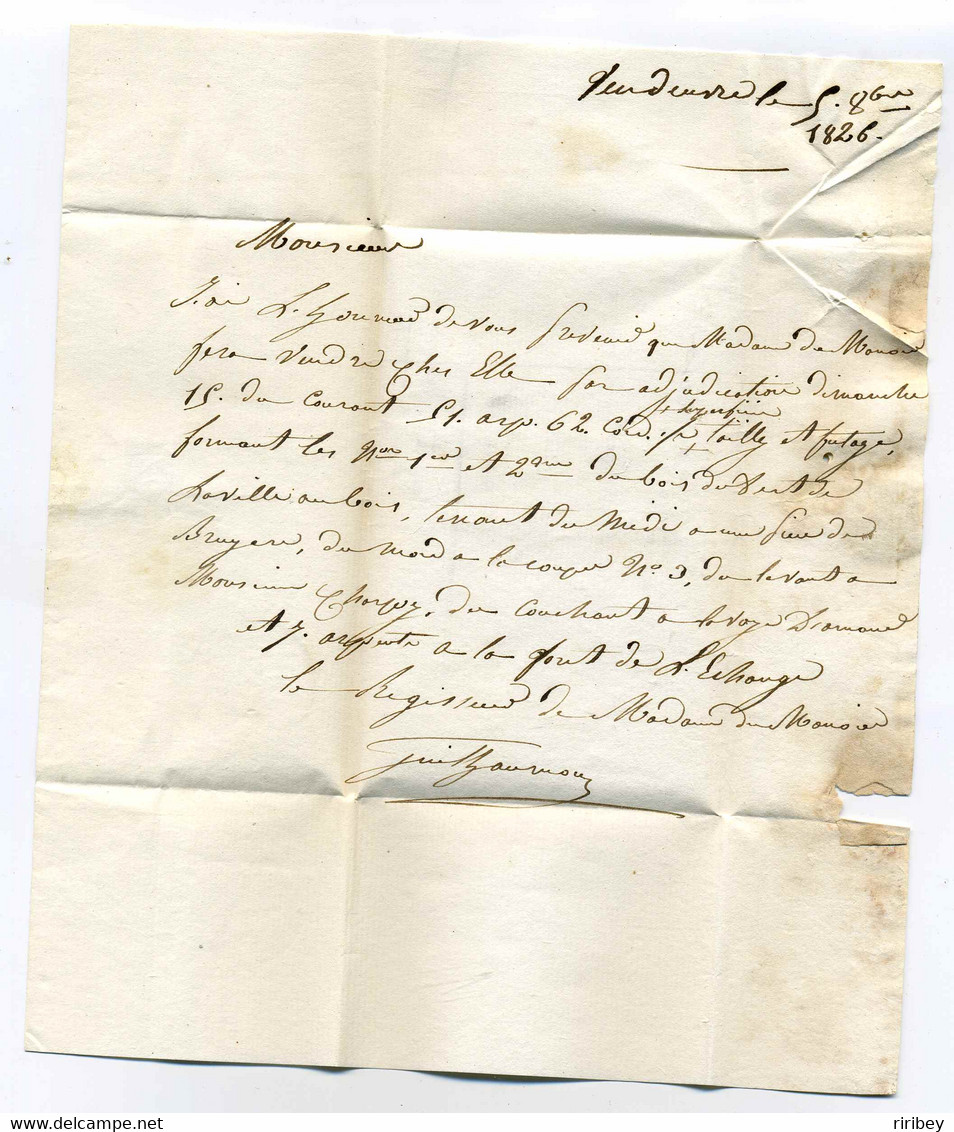 Vendeuvre le 5. 8bre
1826.
Monsieur
J'ai L'honneur de vous prevenir que Madame du Manoir
fera vendre chez Elle par adjudication dimanche
+ superficie
15. du courant 51. arp. 62. cord. + tailly et futaye,
formant les Nos 1er et 2eme du bois du Vert de
Laville au bois, tenant du Midi a une piece de
Bruyere, du nord a la coupe No 3, du levant a
Monsieur, du Couchant a la voye
et 7. arpents a la font de L'Echange
le Regisseur de Madame du Manoir
riribey